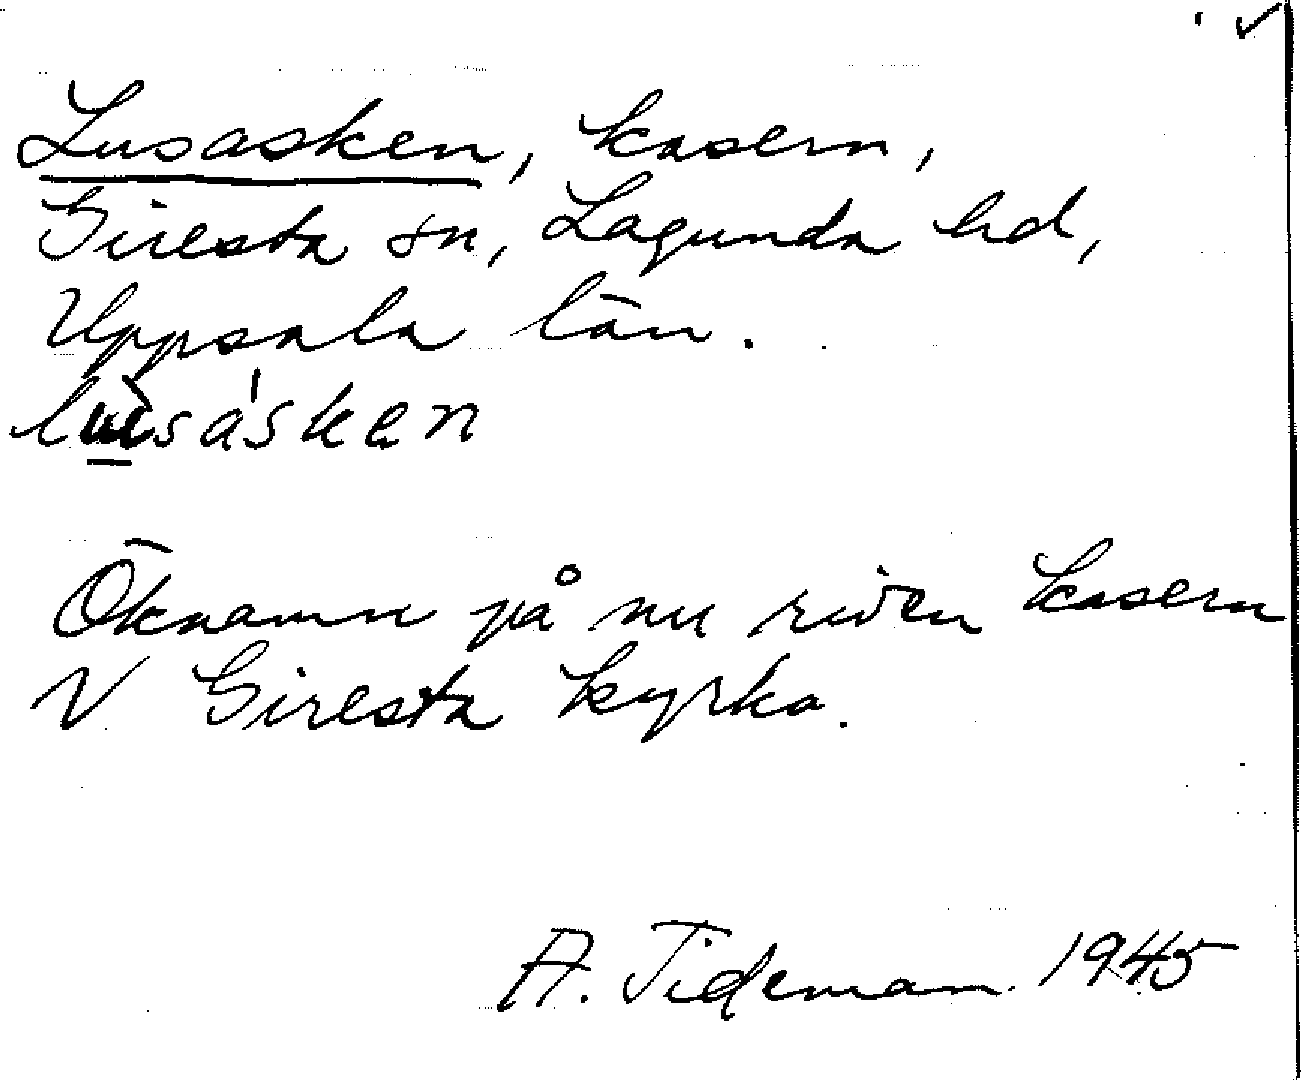 Lusasken, kasern,
Giresta sn, Lagunda hd,
Uppsala län.
Öknamn på nu riven kasern
V Giresta kyrka.
A. Tideman 1945